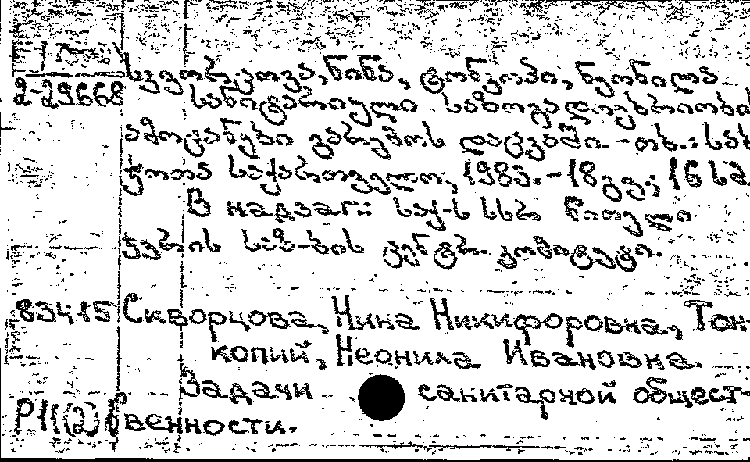 სკვორცოვა, ნინა, ტონკოპი, ნეონილა
2-29668 სანიტარიული საზოგადოებრიობის
ამოცანები გარემოს დაცვაში. - თბ.: საბ
ჭოთა საქართველო, 1983. - 18 გვ; 16 სმ
В надзаг.: საქ-ს სსრ წითელი
ჯვრის საზ-ბის ცენტრ. კომიტეტი.
83415 Скворцова, Нина Никифоровна, Тон-
копий, Неонила Ивановна.
Задачи санитарной общест-
Р11(2) венности.